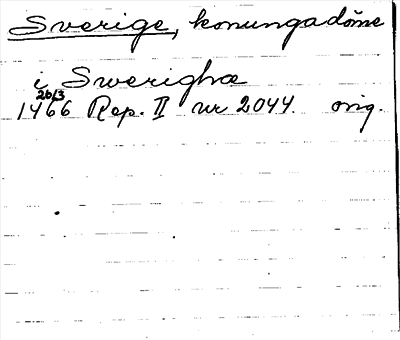 Sverige, konungadöme
i Swerighæ
1466 26/3 Rep. II nr 2044. orig.